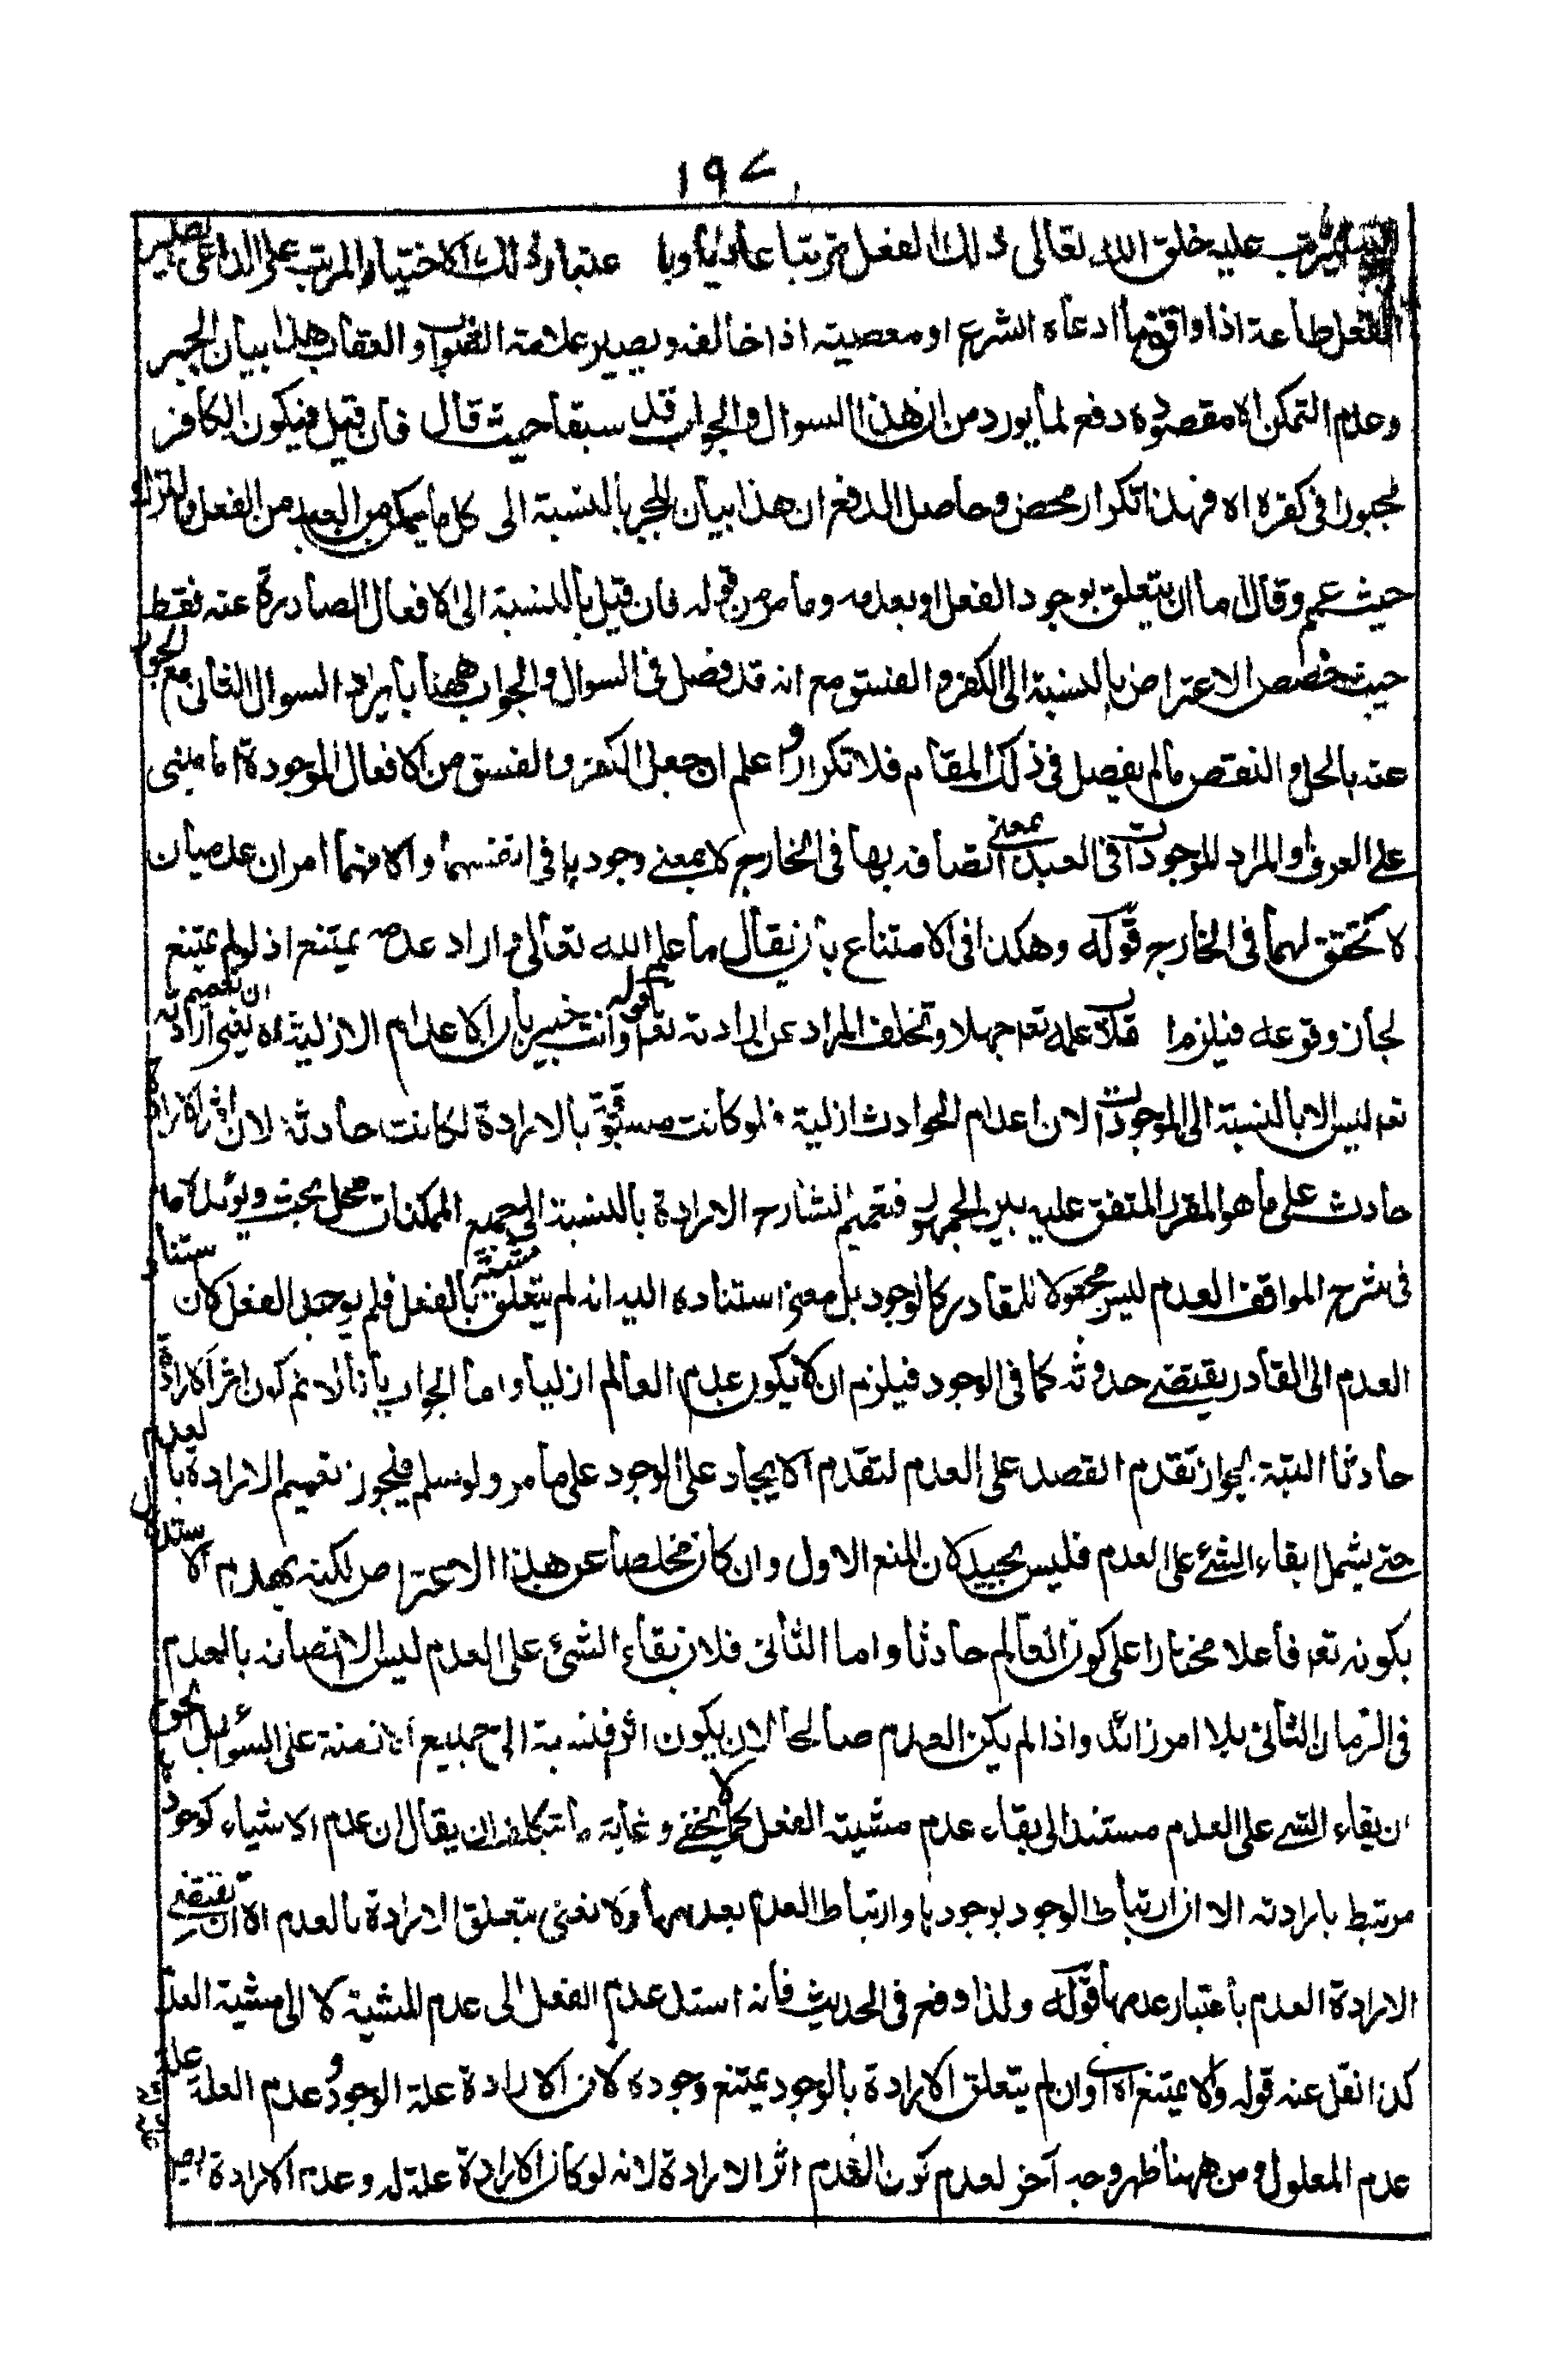 ١٩٧
يترتب عليه خلق الله تعالى ذلك الفعل ترتبا عاديا وبا عتبار ذلك الاختيار المرتب على الداعى يصير
الفعل طاعة اذا وافق ما ادعاه الشرع او معصية اذا خالفه ويصير علامة الثواب والعقاب هذا بيان الجبر
وعدم التمكن اه مقصوده دفع لما يورد من ان هذا السوال والجواب قد سبقا حيث قال فان قيل فيكون الكافر
مجبورا فى كفره اه فهذا تكرار محض وحاصل الدفع ان هذا بيان للجبر بالنسبة الى كل ما يمكن من العبد من الفعل والترك
حيث عمم وقال اما ان يتعلق بوجود الفعل او بعدمه وما مر من قوله فان قيل بالنسبة الى الافعال الصادرة عنه فقط
حيث خصص الاعتراض بالنسبة الى الكفر و الفسق مع انه قد فصل فى السوال والجواب ههنا بايراد السوال الثانى مع الجواب
عنه بالحل والنقض ما لم يفصل فى ذلك المقام فلا تكرار واعلم ان جعل الكفر والفسق من الافعال الموجودة اما مبنى
على العرف او المراد الموجودات فى العبد بمعنى اتصافه بها فى الخارج لا بمعنے وجودها فى انفسهما والا فهما امران عدميان
لا تحقق لهما فى الخارج قوله وهكذا فى الامتناع بان يقال ما علم الله تعالى واراد عدمه يمتنع اذ لو لم يمتنع
لجاز وقوعه فيلزم انقلاب علمه تعہ جهلا وتخلف المراد عن ارادته تعہ قوله وانت خبير بان الاعدام الازلية اه يعنى ان تعميم ارادته
تعہ ليس الا بالنسبة الى الموجودات لان اعدام الحوادث ازلية فلو كانت مسبوقة بالارادة لكانت حادثة لان اثر الارادة
حادث على ما هو المقرر المتفق عليه بين الجمهور فتعميم الشارح الارادة بالنسبة الى جميع الممكنات محل بحث ويؤيده ما
فى شرح المواقف العدم ليس مجعولا للقادر كالوجود بل معنى استناده اليه انه لم يتعلق مشيئته بالفعل فلم يوجد الفعل كان استناد
العدم الى القادر يقتضے حدوثه كما فى الوجود فيلزم ان لا يكون عدم العالم ازليا واما الجواب بانا لا نم كون اثر الارادة
حادثا البتة بجواز تقدم القصد على العدم لتقدم الايجاد على الوجود على ما مر ولو سلم فليجوز تعميم الارادة بالعدم
حتے يشمل ابقاء الشئ على العدم فليس بجيد لان المنع الاول وان كان مخلصا عن هذا الاعتراض لكنه يهدم الاستدلال
بكونه تعہ فاعلا مختارا على كون العالم حادثا واما الثانى فلان بقاء الشئ على العدم ليس الا اتصافه بالعدم
فى الزمان الثانى بلا امر زائد واذا لم يكن العدم صالحا لان يكون اثرا فنسبة الى جميع الازمنة على السواء بل الحق
ان بقاء الشے على العدم مستند الى بقاء عدم مشية الفعل كما لا يخفے وغاية ما يتكلف ان يقال ان عدم الاشياء كوجودها
مرتبط بارادته الا ان ارتباط الوجود بوجودها وارتباط العدم بعدمها ولا نعنى بتعلق الارادة بالعدم الا ان تقتضى
الارادة العدم باعتبار عدمها قوله ولذا وقع فى الحديث فانه اسند عدم الفعل الى عدم المشية لا الى مشية العدم
كذا نقل عنه قوله والا يمتنع اه اى وان لم يتعلق الارادة بالوجود يمتنع وجوده لان الارادة علة الوجود وعدم العلة علة
عدم المعلول ومن ههنا ظهر وجه آخر لعدم كون العدم اثر الارادة لانه لو كان الارادة علة له وعدم الارادة